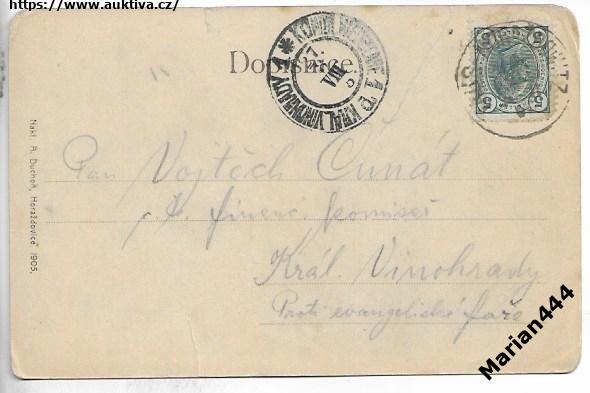 https://www.auktiva.cz/
Dopisnice
5 5
5 5
KÖNIGL. WEINBERGE 1 * KRÁL. VINOHRADY 1 *
VIII
Nakl. A. Duchoň, Horažďovice 1905.
Pan Vojtěch Čunát
c. k. finanč. komisař
Král. Vinohrady
Proti evangelické faře
Marian444